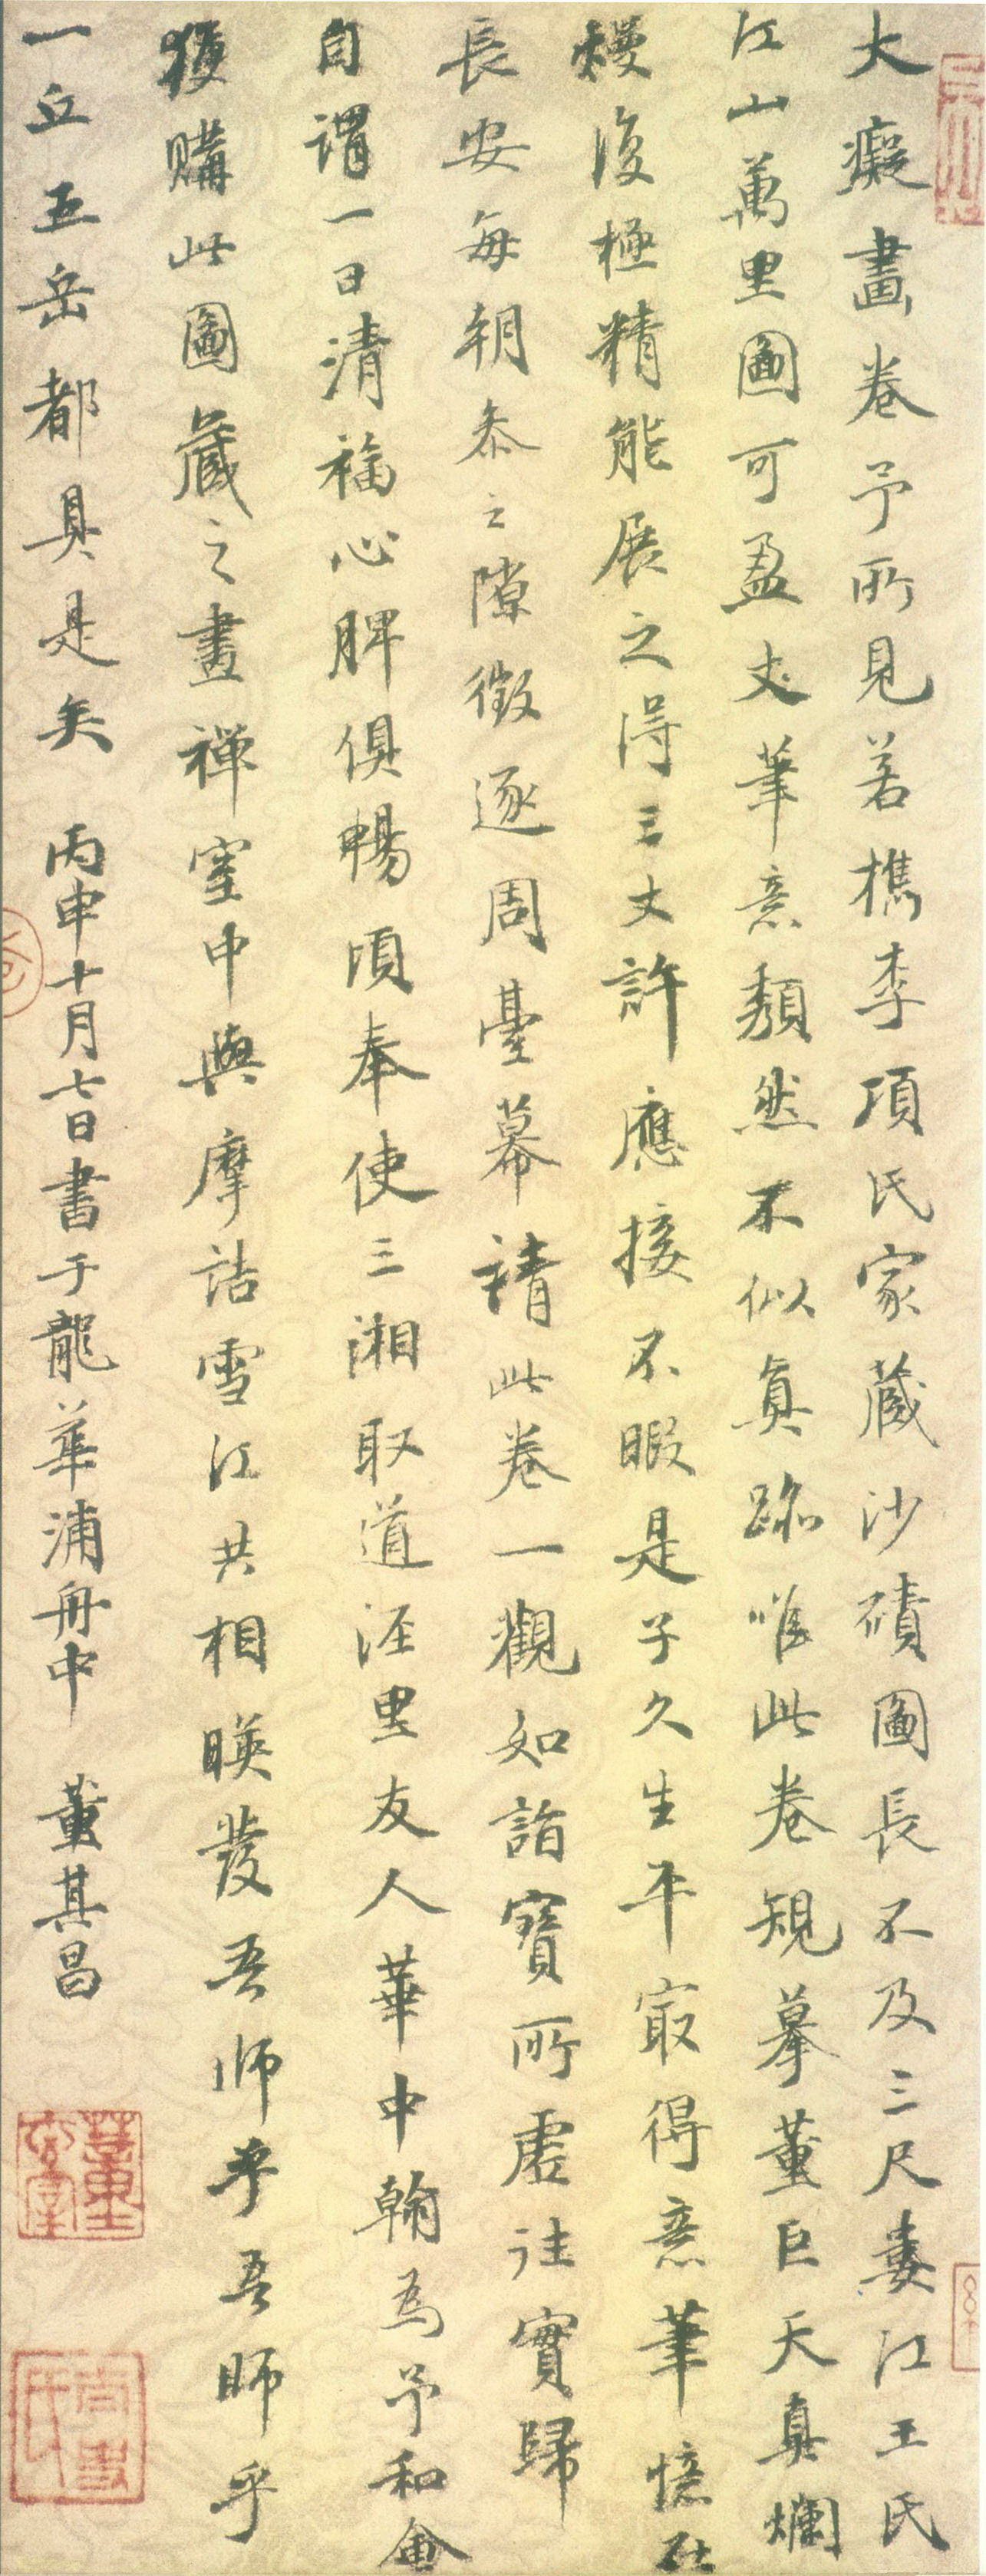 大癡畫卷予所見若檇李項氏家藏沙磧圖長不及三尺婁江王氏
江山萬里圖可盈丈筆意頹然不似真跡唯此卷規摹董巨天真爛
熳復極精能展之得三丈許應接不暇是子久生平最得意筆憶在
長安每朝參之隙徵逐周臺幕請此卷一觀如詣寶所虛往實歸
自謂一日清福心脾俱暢頃奉使三湘取道涇里友人華中翰為予和會
獲購此圖藏之畫禪室中與摩詰雪江共相映發吾師乎吾師乎
一丘五岳都具是矣 丙申十月七日書于龍華浦舟中 董其昌